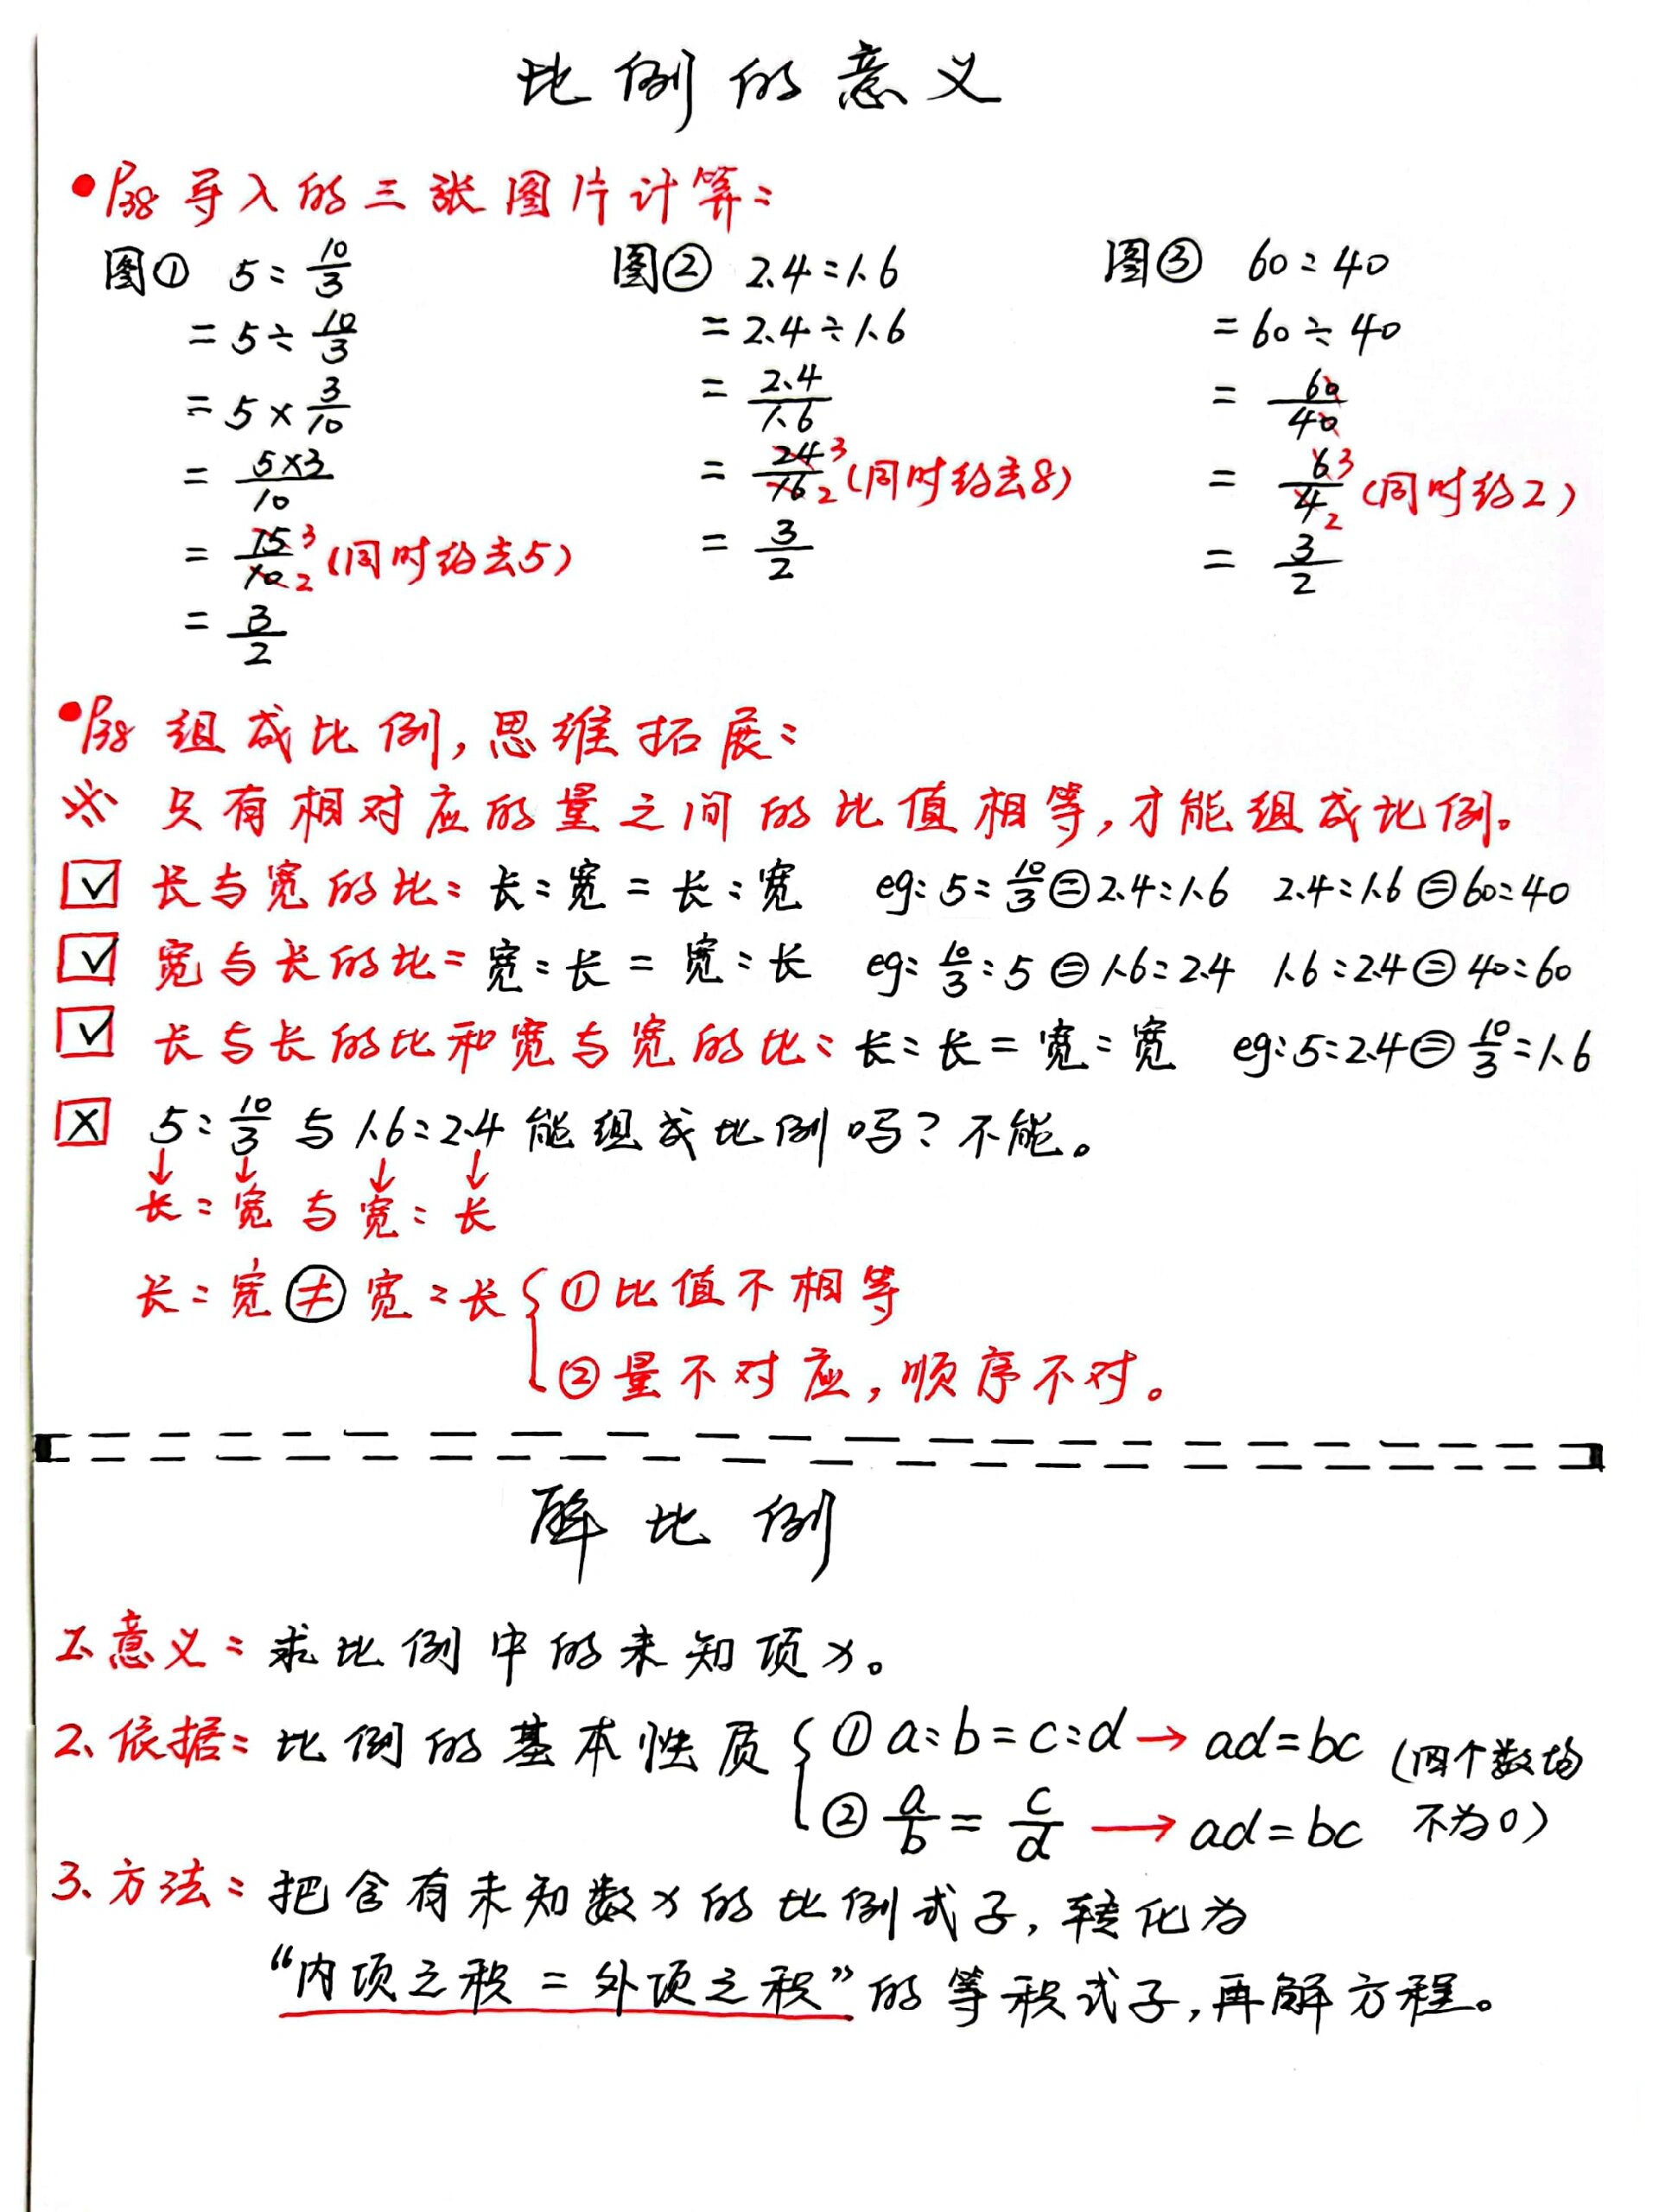 比例的意义
•P38 导入的三张图片计算:
图① 5:10/3
=5÷10/3
=5×3/10
=5×3/10
=15/10 3 2 (同时约去5)
=3/2
图② 2.4:1.6
=2.4÷1.6
=2.4/1.6
=24/16 3 2 (同时约去8)
=3/2
图③ 60:40
=60÷40
=60/40
=6/4 3 2 (同时约2)
=3/2
•P38 组成比例,思维拓展:
※ 只有相对应的量之间的比值相等,才能组成比例。
☑ 长与宽的比:长:宽=长:宽 eg:5:10/3=2.4:1.6 2.4:1.6=60:40
☑ 宽与长的比:宽:长=宽:长 eg:10/3:5=1.6:2.4 1.6:2.4=40:60
☑ 长与长的比和宽与宽的比:长:长=宽:宽 eg:5:2.4=10/3:1.6
☒ 5:10/3与1.6:2.4能组成比例吗?不能。
↓ ↓ ↓ ↓
长:宽与宽:长
长:宽≠宽:长{①比值不相等
②量不对应,顺序不对。
解比例
1.意义:求比例中的未知项x。
2、依据:比例的基本性质{①a:b=c:d→ad=bc (四个数均
②a/b=c/d→ad=bc 不为0)
3、方法:把含有未知数x的比例式子,转化为
“内项之积=外项之积”的等积式子,再解方程。